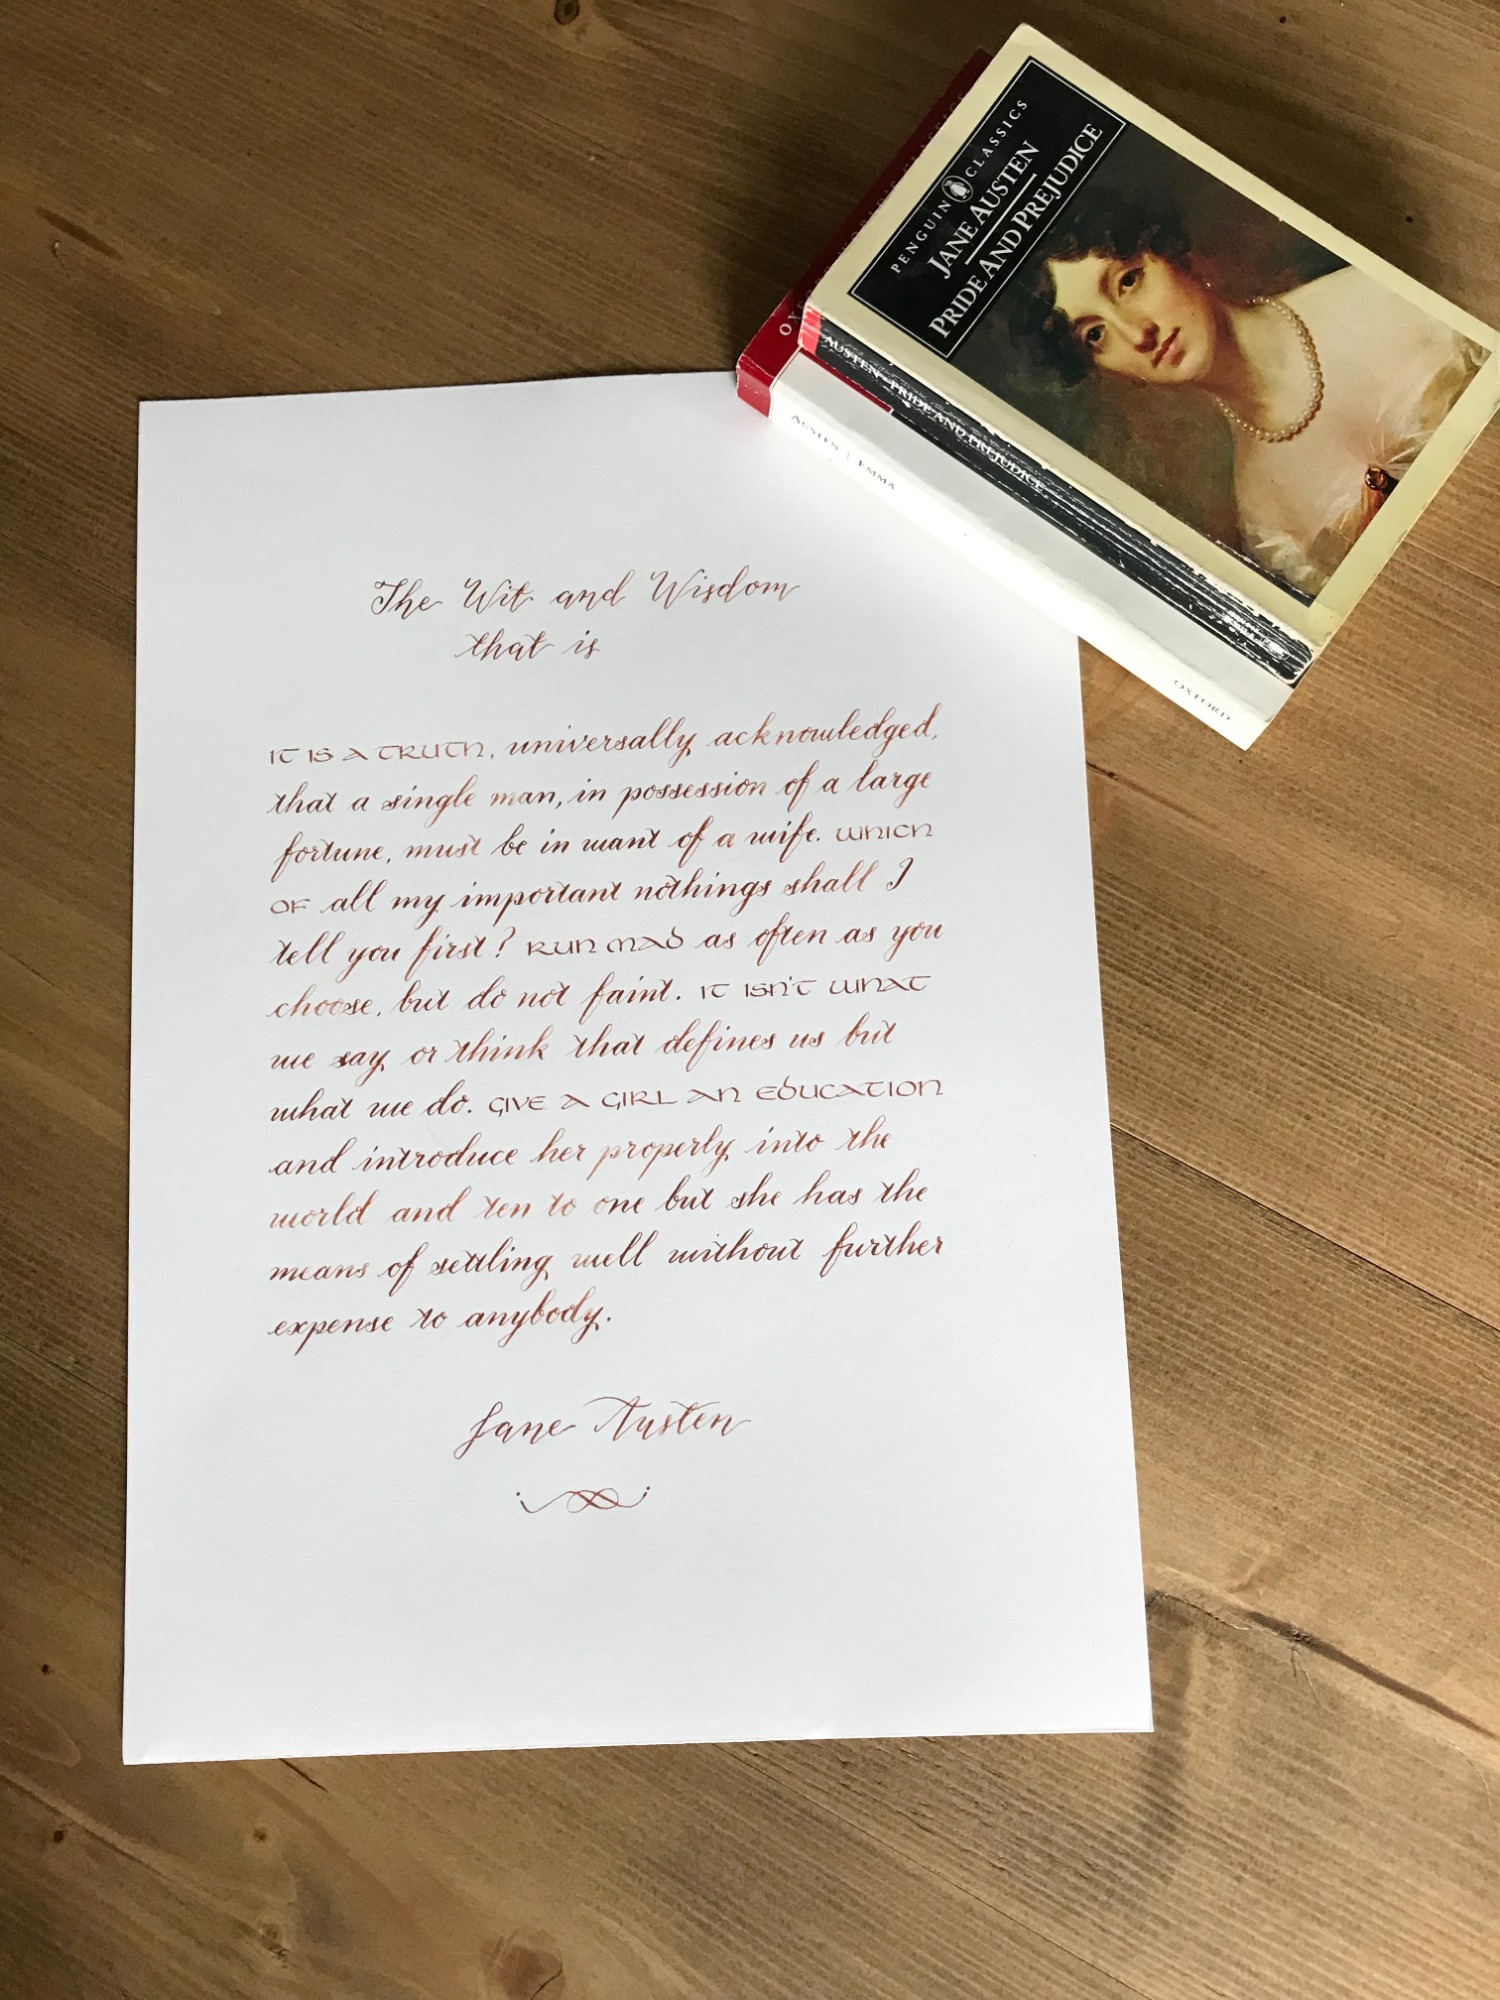 PENGUIN CLASSICS
JANE AUSTEN
PRIDE AND PREJUDICE
AUSTEN · PRIDE AND PREJUDICE
AUSTEN | EMMA
OXFORD
The Wit and Wisdom
that is
IT IS A TRUTH, universally acknowledged,
that a single man, in possession of a large
fortune, must be in want of a wife. WHICH
OF all my important nothings shall I
tell you first? RUN MAD as often as you
choose, but do not faint. IT ISN'T WHAT
we say or think that defines us but
what we do. GIVE A GIRL AN EDUCATION
and introduce her properly into the
world and ten to one but she has the
means of settling well without further
expense to anybody.
Jane Austen